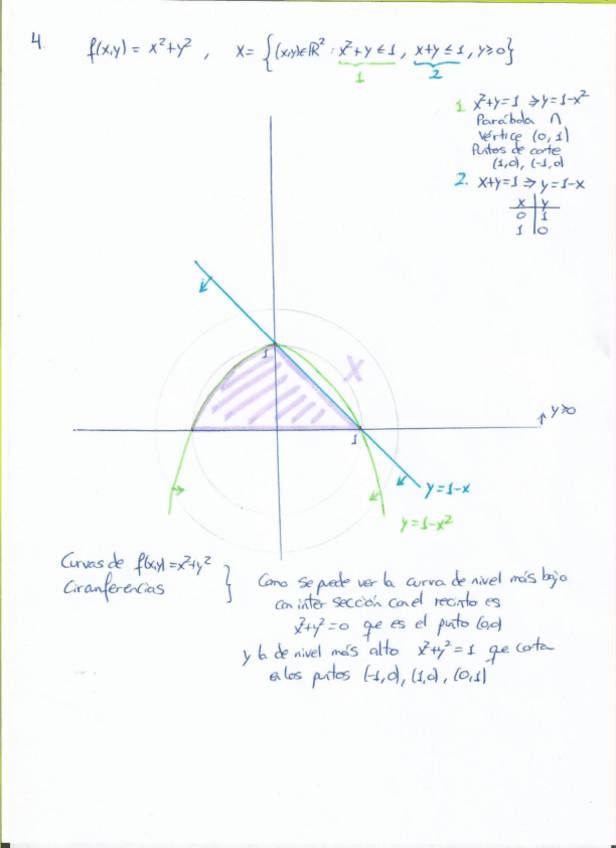 4. f(x,y) = x²+y² , X = {(x,y)∈ℝ² : x²+y≤1, x+y≤1, y≥0}
1 2
1. x²+y=1 ⇒ y=1-x²
Parábola ∩
Vértice (0,1)
Puntos de corte
(1,0), (-1,0)
2. x+y=1 ⇒ y=1-x
x y
0 1
1 0
1
X
y≥0
1
y=1-x
y=1-x²
Curvas de f(x,y)=x²+y²
Circunferencias
Como se puede ver la curva de nivel más bajo
con inter sección con el recinto es
x²+y²=0 que es el punto (0,0)
y la de nivel más alto x²+y²=1 que corta
a los puntos (-1,0), (1,0), (0,1)